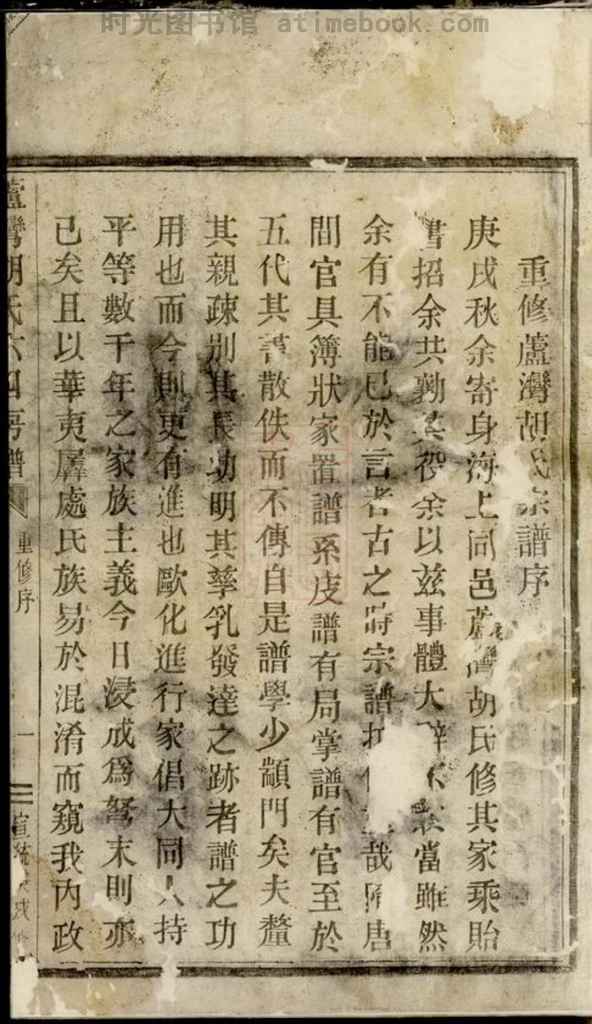 时光图书馆 atimebook.com
重修蘆灣胡氏宗譜序
庚戌秋余寄身海上同邑蘆灣胡氏修其家乘貽
書招余共勷其役余以茲事體大辭不當雖然
余有不能已於言者古之時宗譜哉隋唐
間官具簿狀家置譜系皮譜有局掌譜有官至於
五代其書散佚而不傳自是譜學少顓門矣夫釐
其親疎別其長幼明其孳乳發達之跡者譜之功
用也而今則更有進也歐化進行家倡大同人持
平等數千年之家族主義今日浸成為弩末則亦
已矣且以華夷羼處氏族易於混淆而窺我內政
蘆灣胡氏六四房譜
重修序
一
宣統